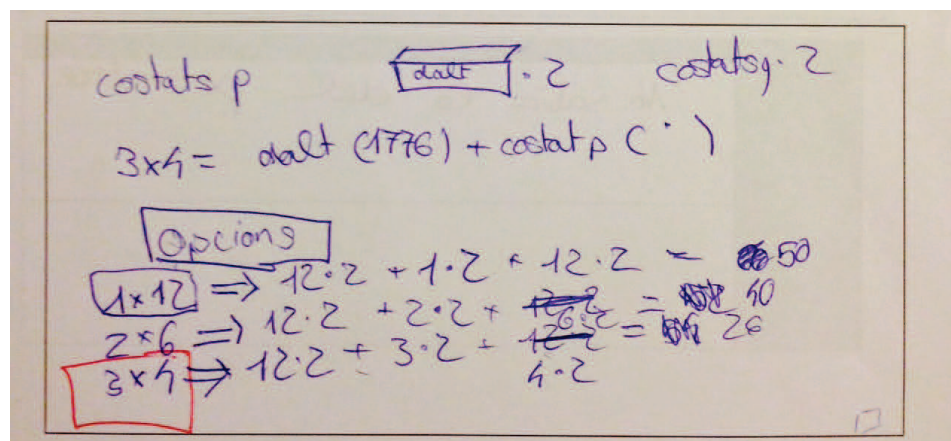 costats p dalt · 2 costats g · 2
3x4 = dalt (1776) + costat p ( · )
Opcions
1x12 => 12·2 + 1·2 + 12·2 = 50
2x6 => 12·2 + 2·2 + 6·2 = 40
3x4 => 12·2 + 3·2 + 4·2 = 26